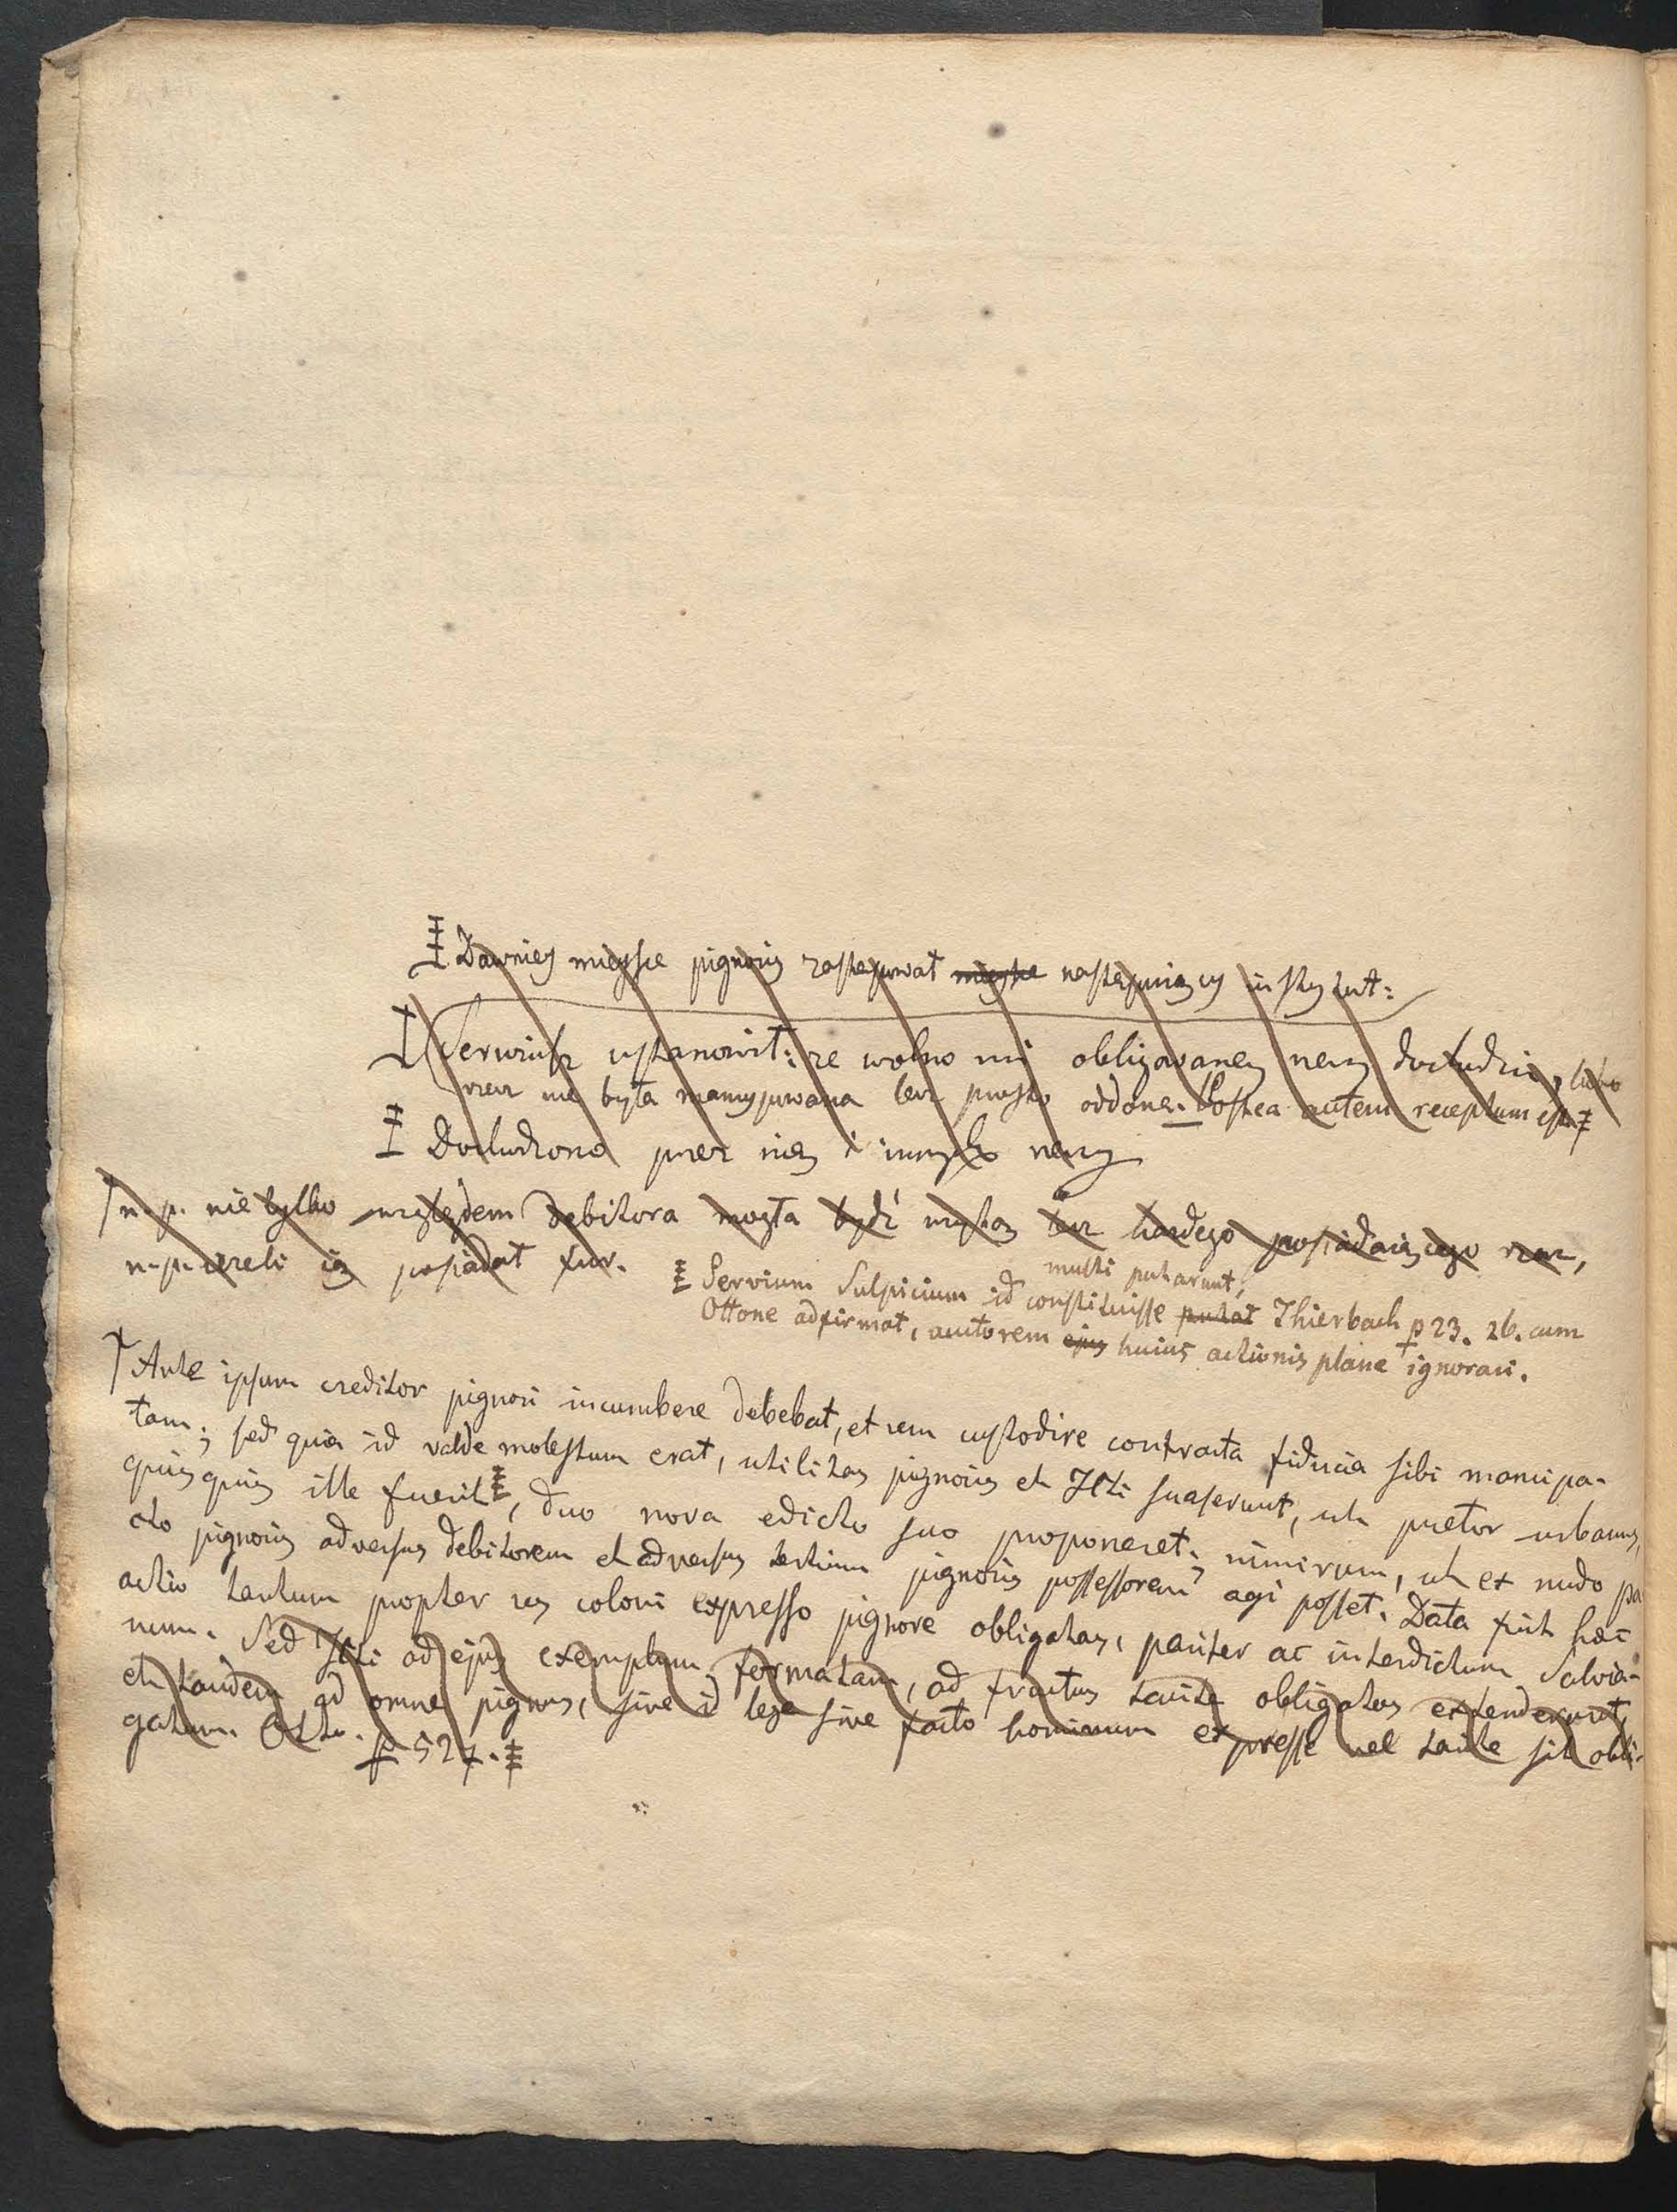 Dawniey mieysce pignoris zastępował mieysce następuiący instytut:
Serwiusz ustanowił: że wolno mu obligowaney rzeczy dochodzić, lubo
rzecz nie była mancypowana lecz prosto oddana. Postea autem receptum est
Dochodzono przez nią i innych rzeczy
n. p. nie tylko względem debitora mogła bydź użytą lecz każdego posiadaiącego rzecz,
n. p. ieżeli ią posiadał fur.
multi putarunt,
Servium Sulpicium id constituisse putat Thierbach p 23. 26. cum
Ottone adfirmat, autorem ejus huius actionis plane ignorari.
Ante ipsum creditor pignori incumbere debebat, et rem custodire contracta fiducia sibi mancipa-
tam; sed quia id valde molestum erat, utilitas pignoris et JCti suaserunt, ut pretor urbanus,
quisquis ille fuerit, duo nova edicto suo proponeret; nimirum, ut ex nudo pa
cto pignoris adversus debitorem et adversus tertium pignoris possessorem agi posset. Data fuit haec
actio tantum propter res coloni expresso pignore obligatas, pariter ac interdictum Salvia-
num. Sed JCti ad ejus exemplum formatam, ad fructus tacite obligatos extenderunt,
et tandem ad omne pignus, sive id lege sive facto hominum expresse vel tacite sit obli-
gatum. Otto. p 527.